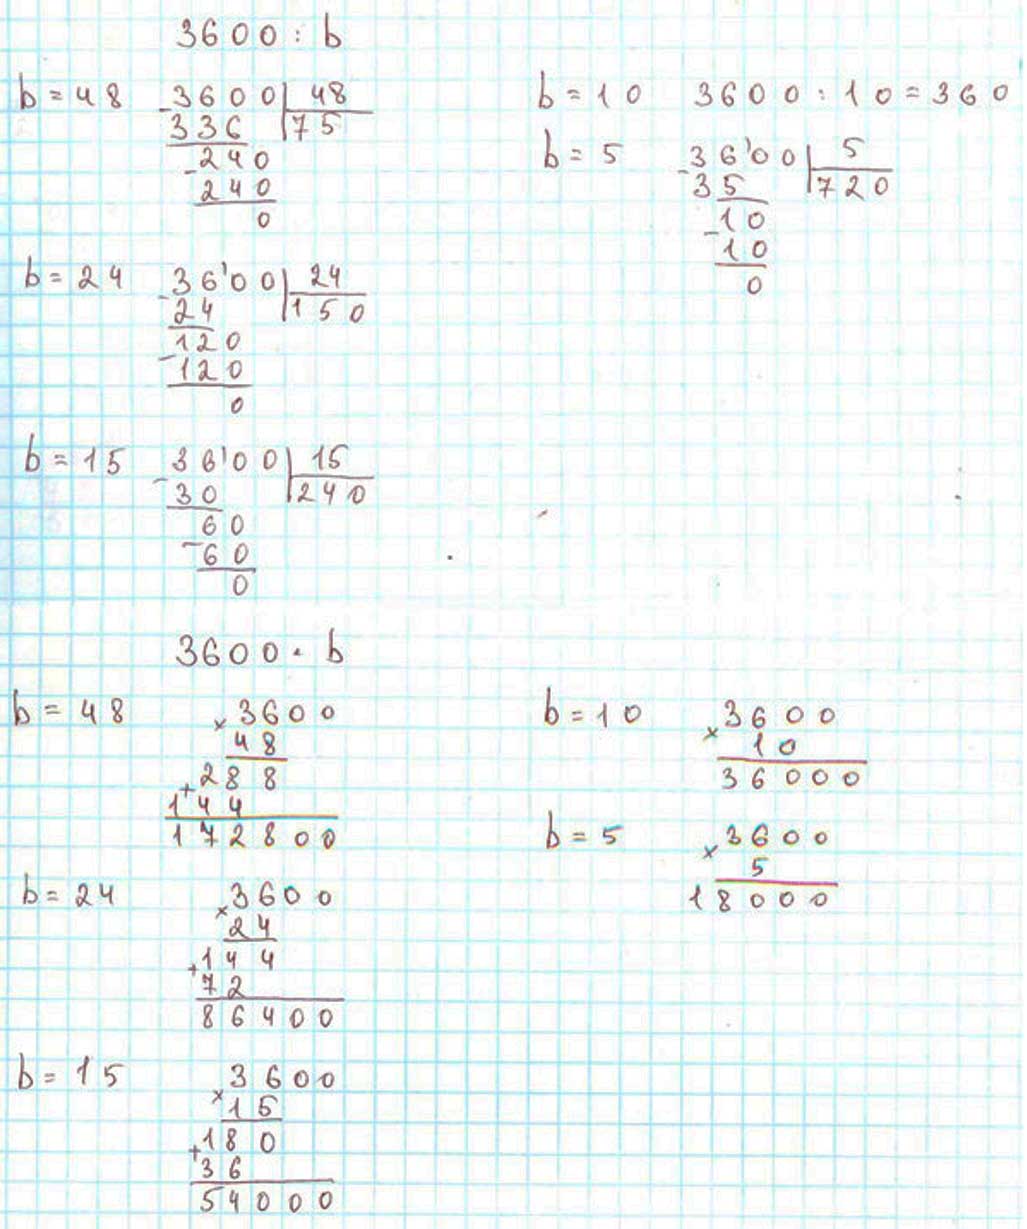 3600 : b
b = 48
- 3600 | 48
336 | 75
- 240
240
0
b = 24
- 36'00 | 24
24 | 150
- 120
120
0
b = 15
- 36'00 | 15
30 | 240
- 60
60
0
b = 10 3600 : 10 = 360
b = 5
- 36'00 | 5
35 | 720
- 10
10
0
3600 · b
b = 48
× 3600
48
+ 288
144
172800
b = 24
× 3600
24
+ 144
72
86400
b = 15
× 3600
15
+ 180
36
54000
b = 10
× 3600
10
36000
b = 5
× 3600
5
18000